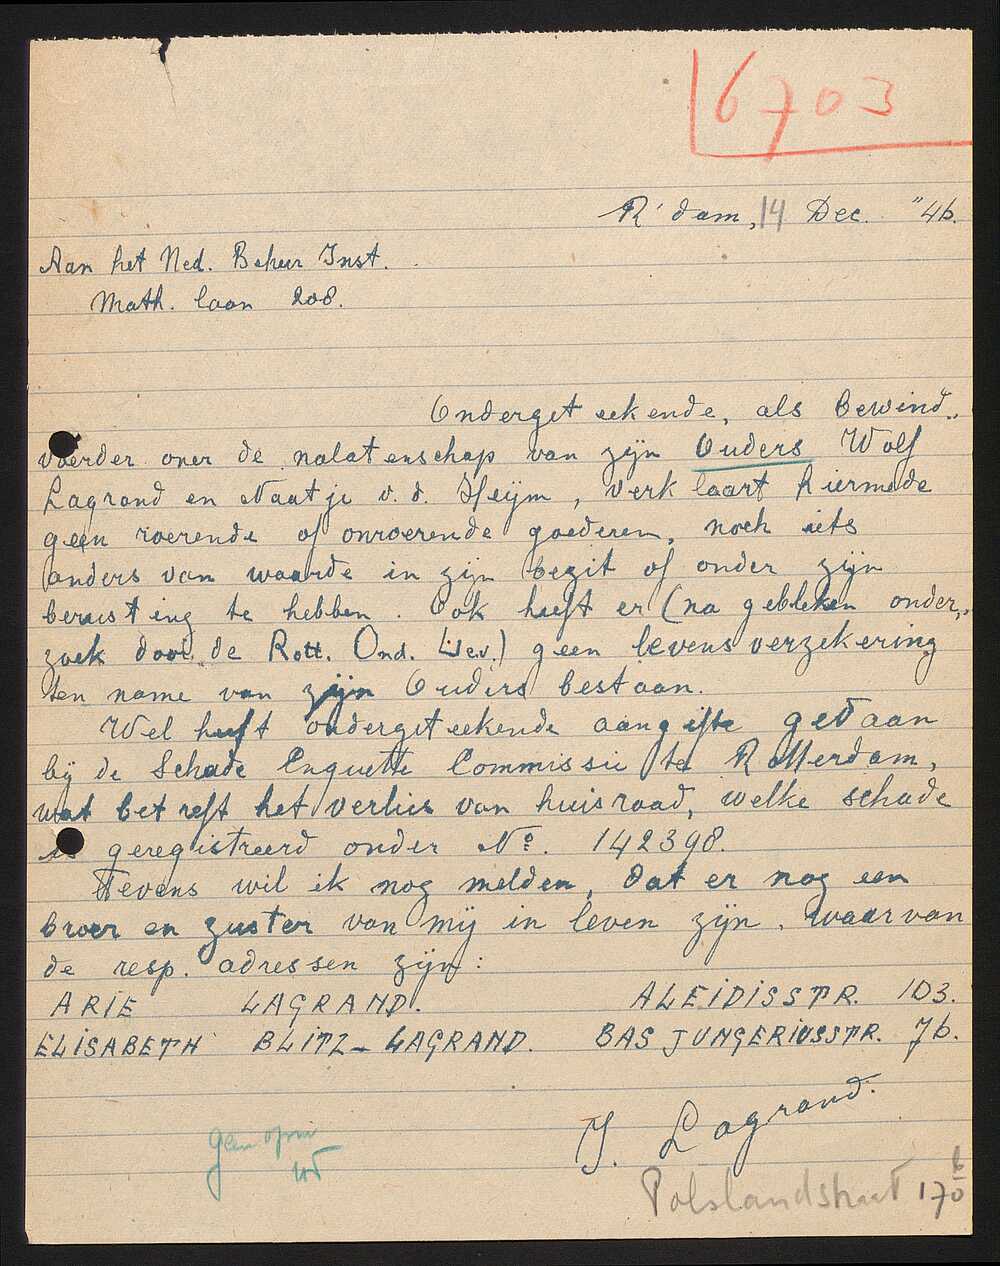 6703
R'dam, 14 Dec. "46.
Aan het Ned. Beheer Inst.
Math. laan 208.
Ondergeteekende, als bewind-
voerder over de nalatenschap van zijn Ouders Wolf
Lagrand en Naatje v. d. Heijm, verklaart hiermede
geen roerende of onroerende goederen, noch iets
anders van waarde in zijn bezit of onder zijn
berusting te hebben. Ook heeft er (na gebleken onder-
zoek door de Rott. Ond. Lev.) geen levensverzekering
ten name van zijn Ouders bestaan.
Wel heeft ondergeteekende aangifte gedaan
bij de Schade Enquette Commissie te Rotterdam,
wat betreft het verlies van huisraad, welke schade
is geregistreerd onder No. 142398.
Tevens wil ik nog melden, dat er nog een
broer en zuster van mij in leven zijn, waarvan
de resp. adressen zijn:
ARIE LAGRAND. ALEIDISSTR. 103.
ELISABETH BLITZ-LAGRAND. BAS JUNGERIUSSTR. 7b.
J. Lagrand.
Polslandstraat 170 b